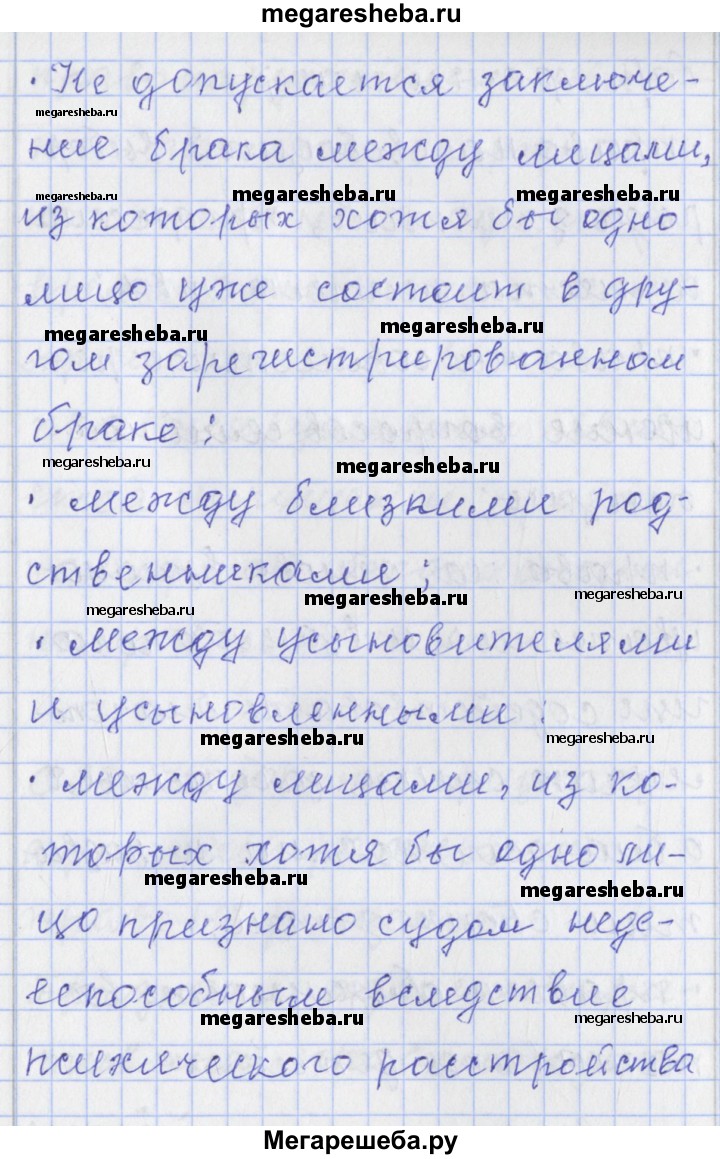 megaresheba.ru
· Не допускается заключе-
megaresheba.ru
ние брака между лицами,
megaresheba.ru megaresheba.ru
из которых хотя бы одно
лицо уже состоит в дру-
megaresheba.ru megaresheba.ru
гом зарегистрированном
браке;
megaresheba.ru megaresheba.ru
· между близкими род-
ственниками;
megaresheba.ru megaresheba.ru megaresheba.ru
· между усыновителями
и усыновленными.
megaresheba.ru megaresheba.ru
· между лицами, из ко-
торых хотя бы одно ли-
megaresheba.ru megaresheba.ru
цо признано судом неде-
еспособным вследствие
megaresheba.ru megaresheba.ru
психического расстройства
Мегарешеба.ру